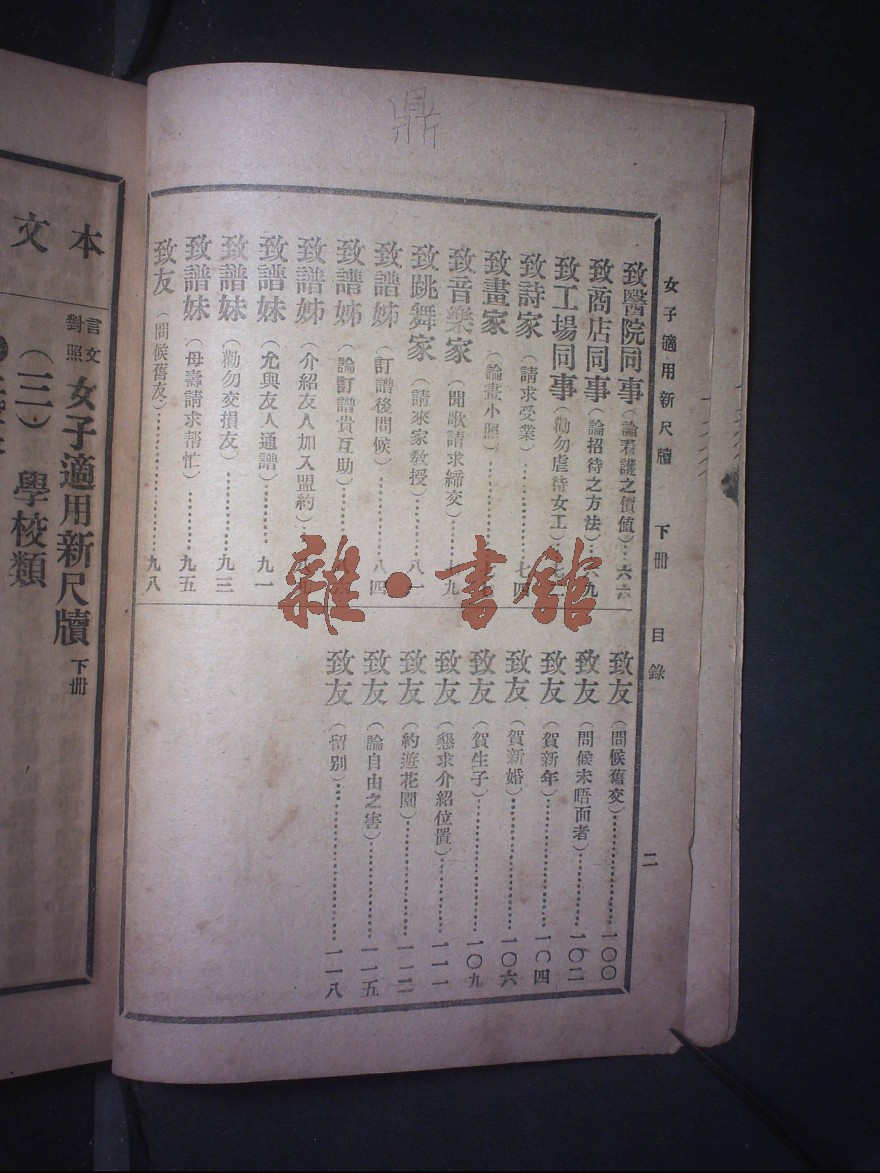 鼎
女子適用新尺牘　下冊　目錄　二
致醫院同事（論看護之價值）…六六
致商店同事（論招待之方法）…六九
致工場同事（勸勿虐待女工）
致詩家（請求受業）………七四
致畫家（論畫小照）………
致音樂家（聞歌請求締交）………九
致跳舞家（請來家教授）………八一
致譜姊（訂譜後問候）………八四
致譜姊（論訂譜貴互助）………
致譜姊（介紹友人加入盟約）………
致譜妹（允與友人通譜）………九一
致譜妹（勸勿交損友）………九三
致譜妹（母壽請求帮忙）………九五
致友（問候舊友）………九八
致友（問候舊交）………一〇〇
致友（問候未晤面者）………一〇二
致友（賀新年）………一〇四
致友（賀新婚）………一〇六
致友（賀生子）………一〇九
致友（懇求介紹位置）………一一一
致友（約遊花園）………一一二
致友（論自由之害）………一一五
致友（留別）………一一八
雜·書館
本文
言文對照女子適用新尺牘下冊
（三）學校類